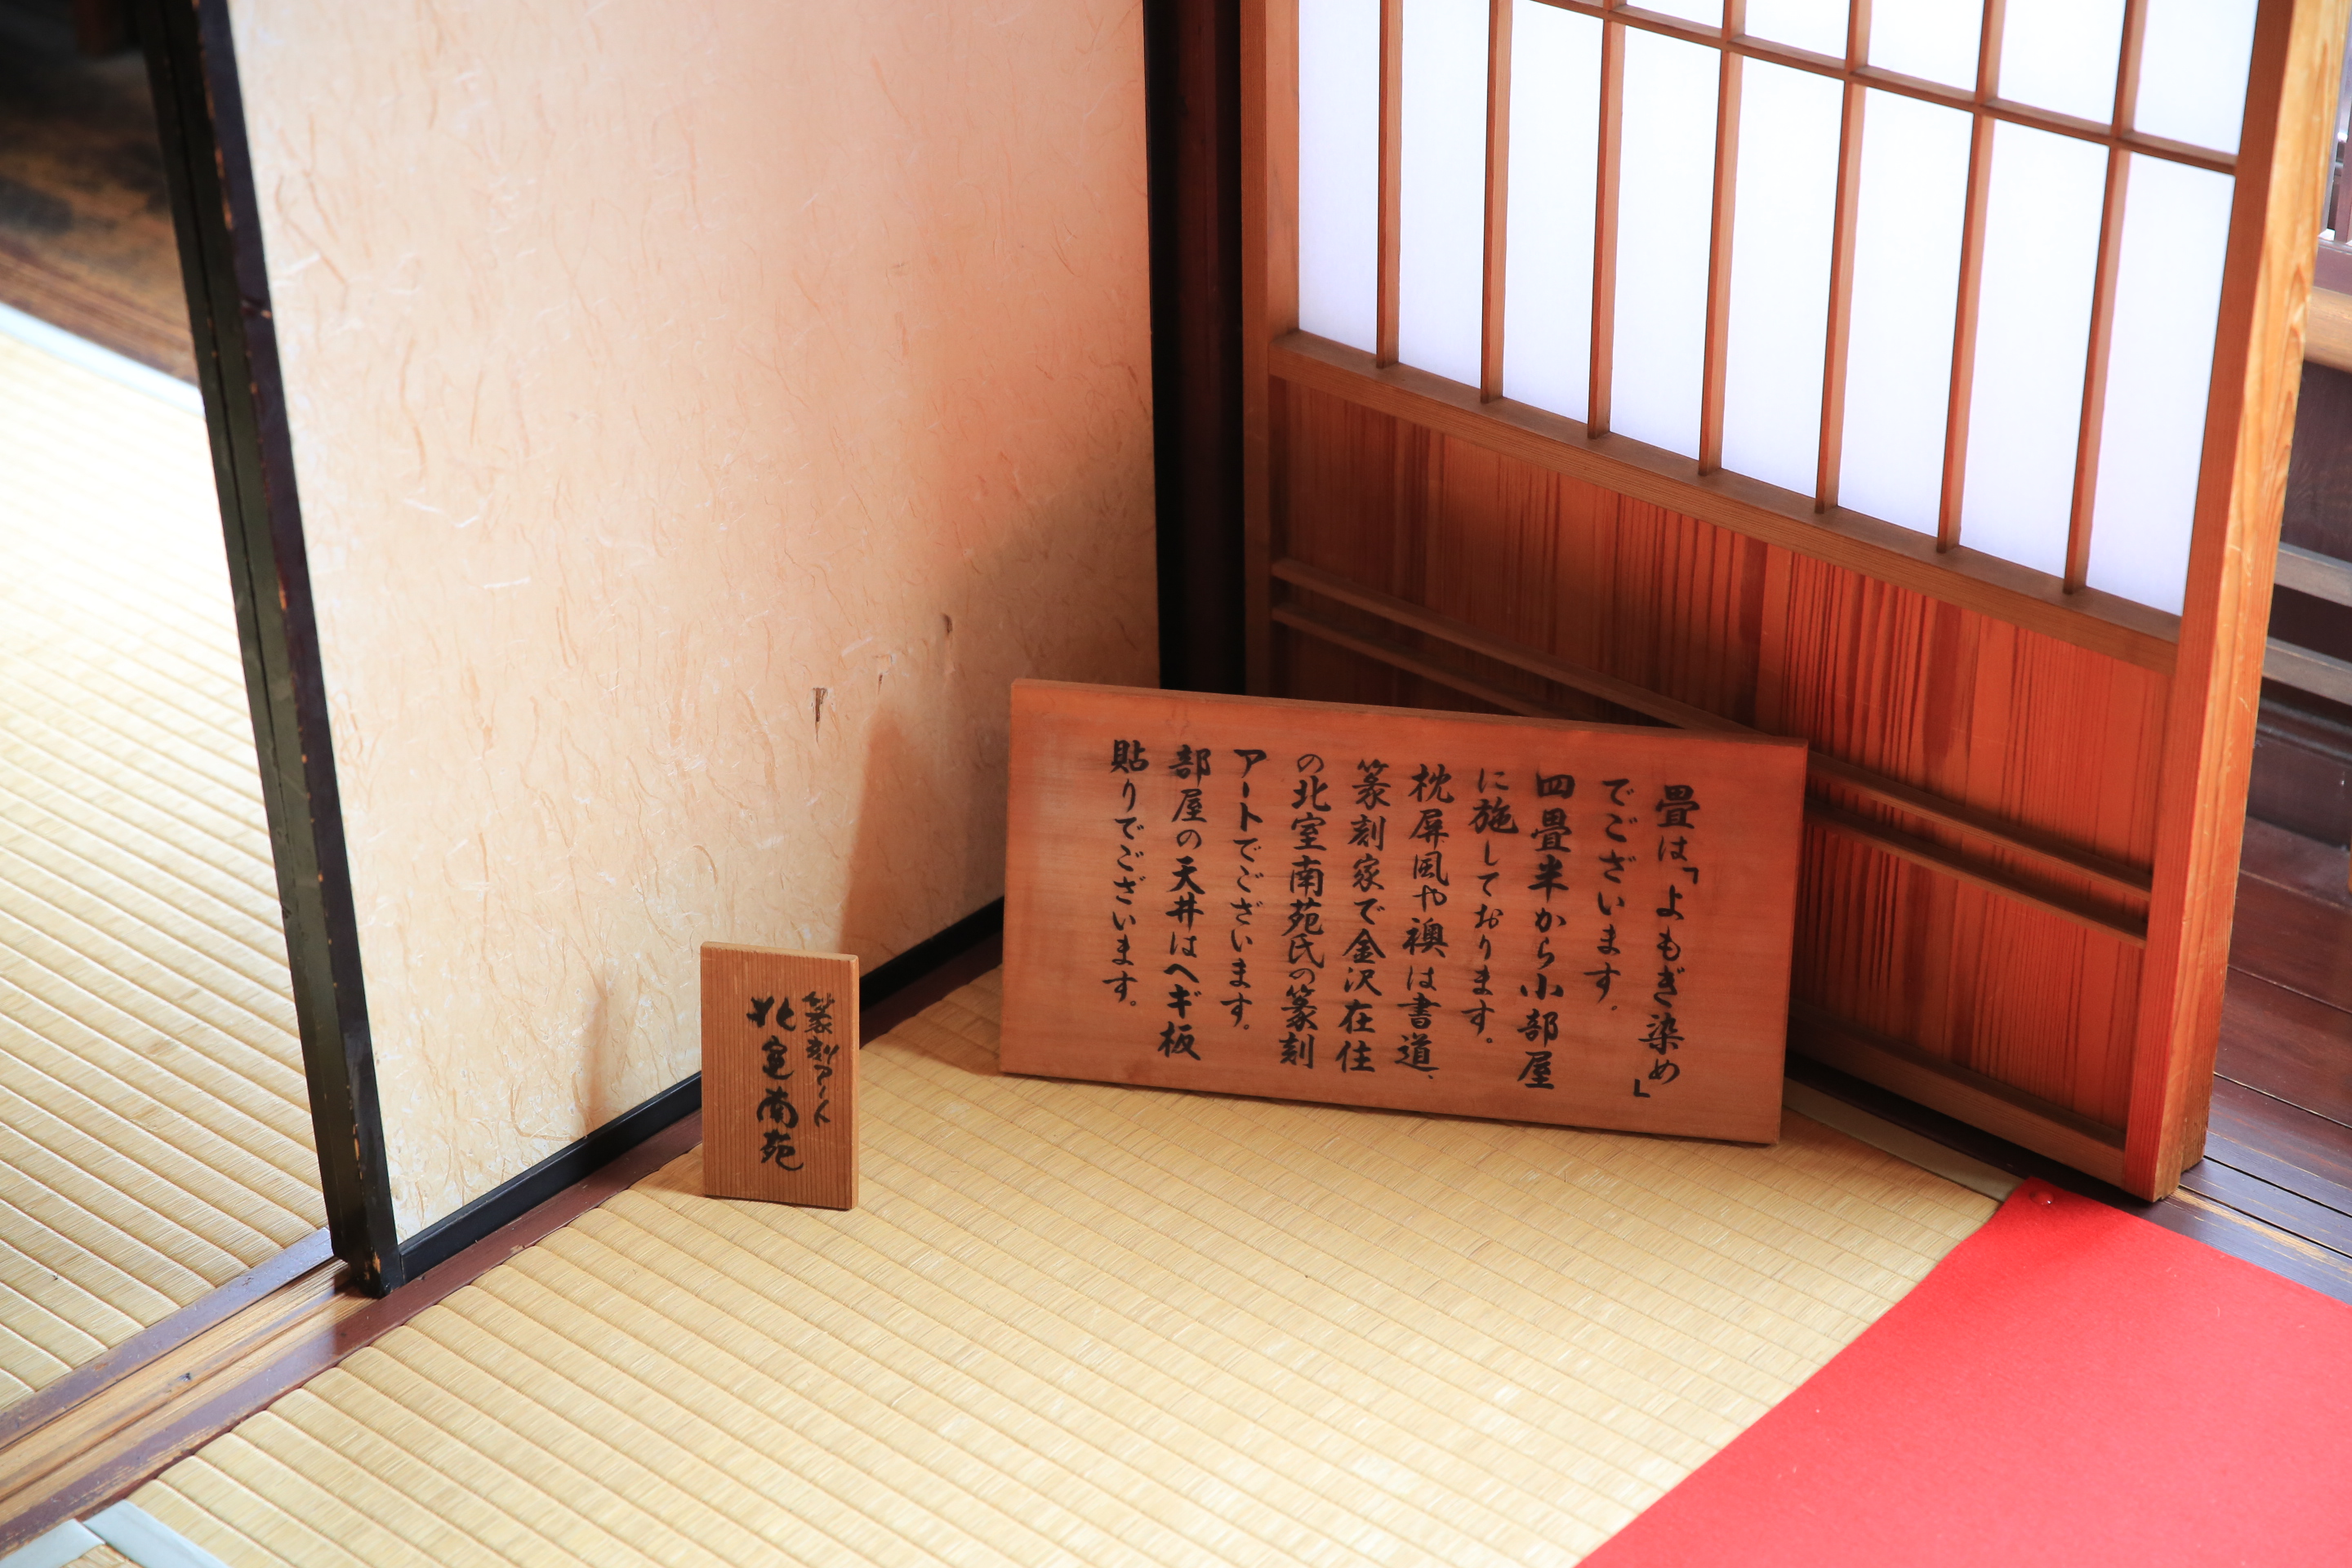 畳は「よもぎ染め」
でございます。
四畳半から小部屋
に施しております。
枕屏風や襖は書道、
篆刻家で金沢在住
の北室南苑氏の篆刻
アートでございます。
部屋の天井はヘギ板
貼りでございます。
篆刻アート
北室南苑